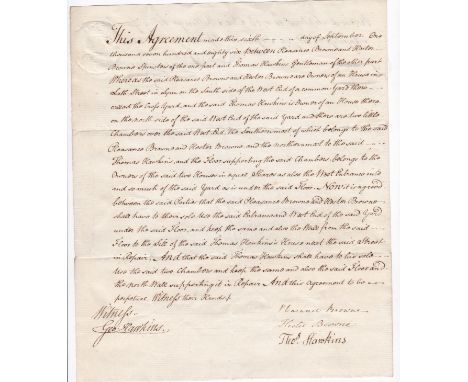 This Agreement made this sixth day of September One
thousand seven hundred and eighty six Between Pleasance Browne and Hester
Browne Spinsters of the one part and Thomas Hawkins Gentleman of the other part
Whereas the said Pleasance Browne and Hester Browne are Owners of an House in
Street in Lynn on the South side of the West End of a common Yard there
called the Yard and the said Thomas Hawkins is Owner of an House there
on the North side of the said West End of the said Yard and there are two little
Chambers over the said West End the Southernmost of which belongs to the said
Pleasance Browne and Hester Browne and the northernmost to the said
Thomas Hawkins and the Floor supporting the said Chambers belongs to the
Owners of the said two Houses in equal Shares as also the West Entrance into
and so much of the said Yard as is under the said Floor. Now it is agreed
between the said Parties that the said Pleasance Browne and Hester Browne
shall have to their sole use the said Entrance and West End of the said Yard
under the said Floor, and keep the same and also the Wall from the said
Floor to the Sill of the said Thomas Hawkins's House next the said Street
in Repair. And that the said Thomas Hawkins shall have to his sole
use the said two Chambers and keep the same and also the said Floor and
the North Wall supporting it in Repair And this Agreement to be
perpetual Witness their Hands
Witness Pleasance Browne
Geo: Hawkins. Hester Browne
Thos. Hawkins